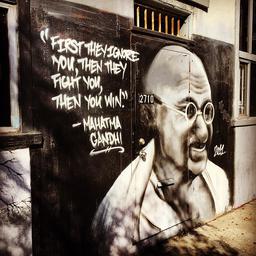 "FIRST THEY IGNORE
YOU, THEN THEY
FIGHT YOU,
THEN YOU WIN."
- MAHATMA
GANDHI
2710